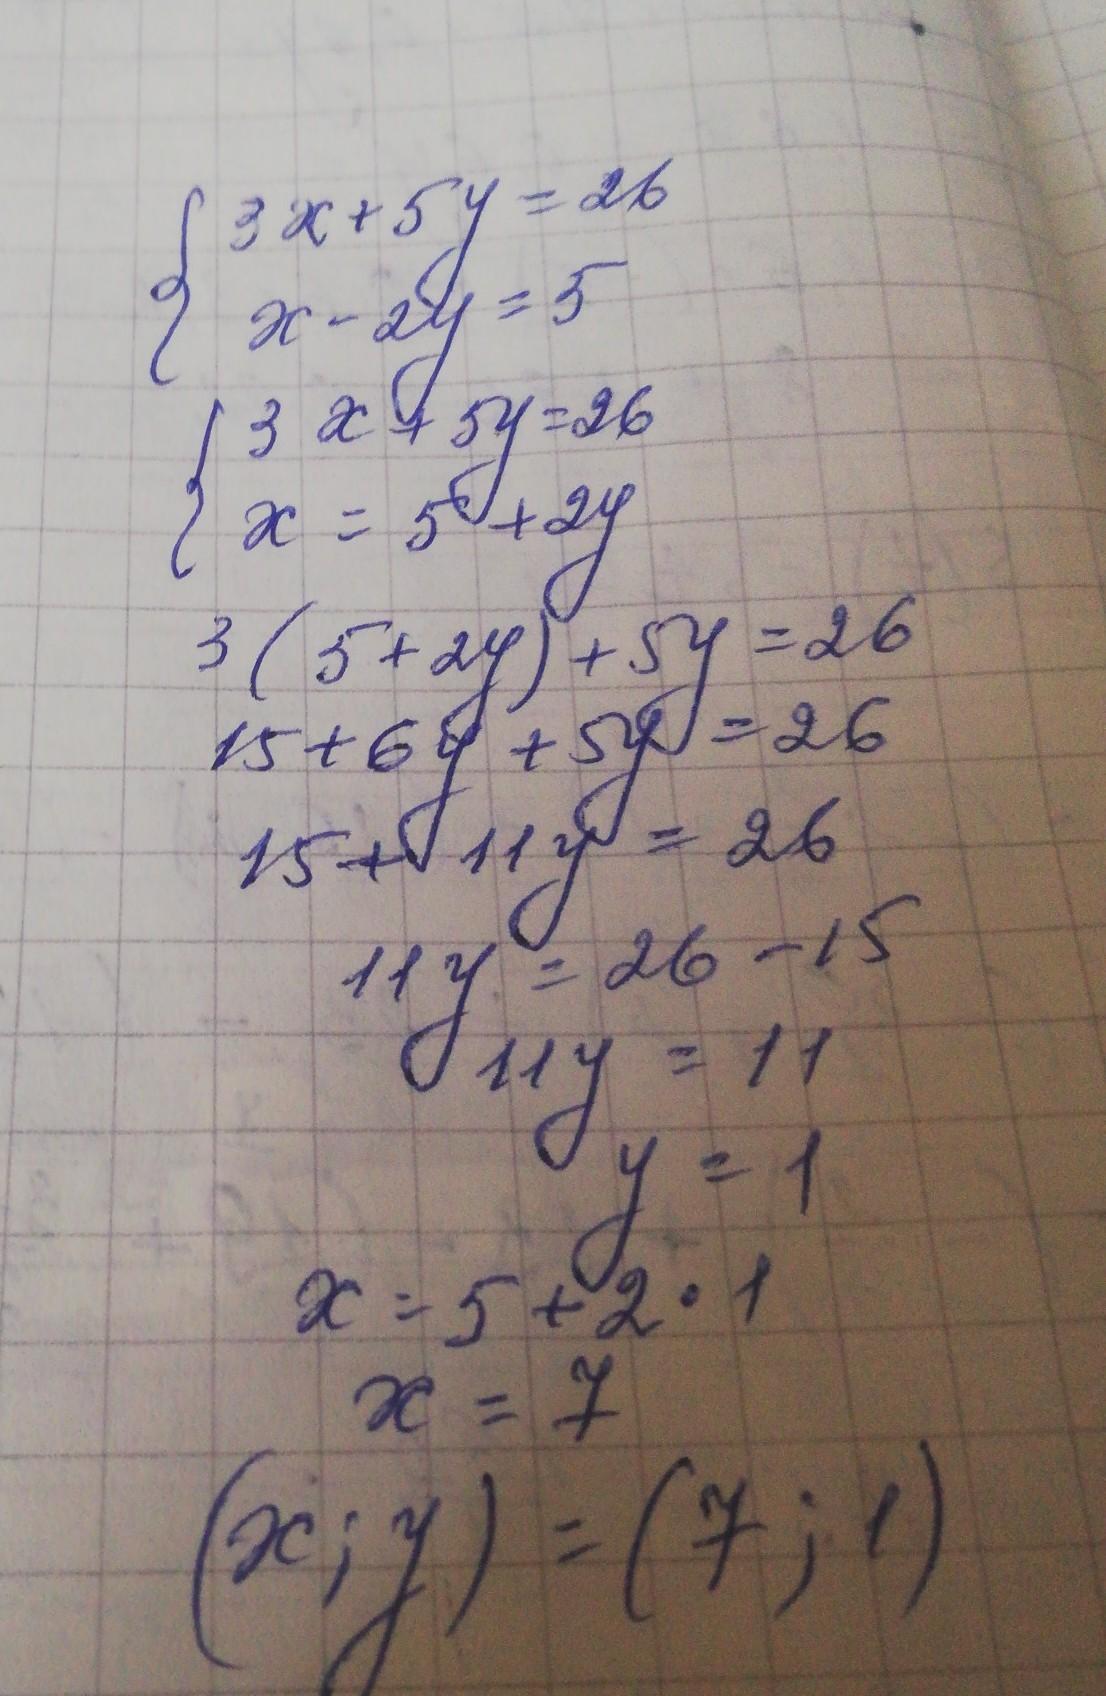 3x+5y=26
x-2y=5
3x+5y=26
x=5+2y
3(5+2y)+5y=26
15+6y+5y=26
15+11y=26
11y=26-15
11y=11
y=1
x=5+2·1
x=7
(x;y)=(7;1)